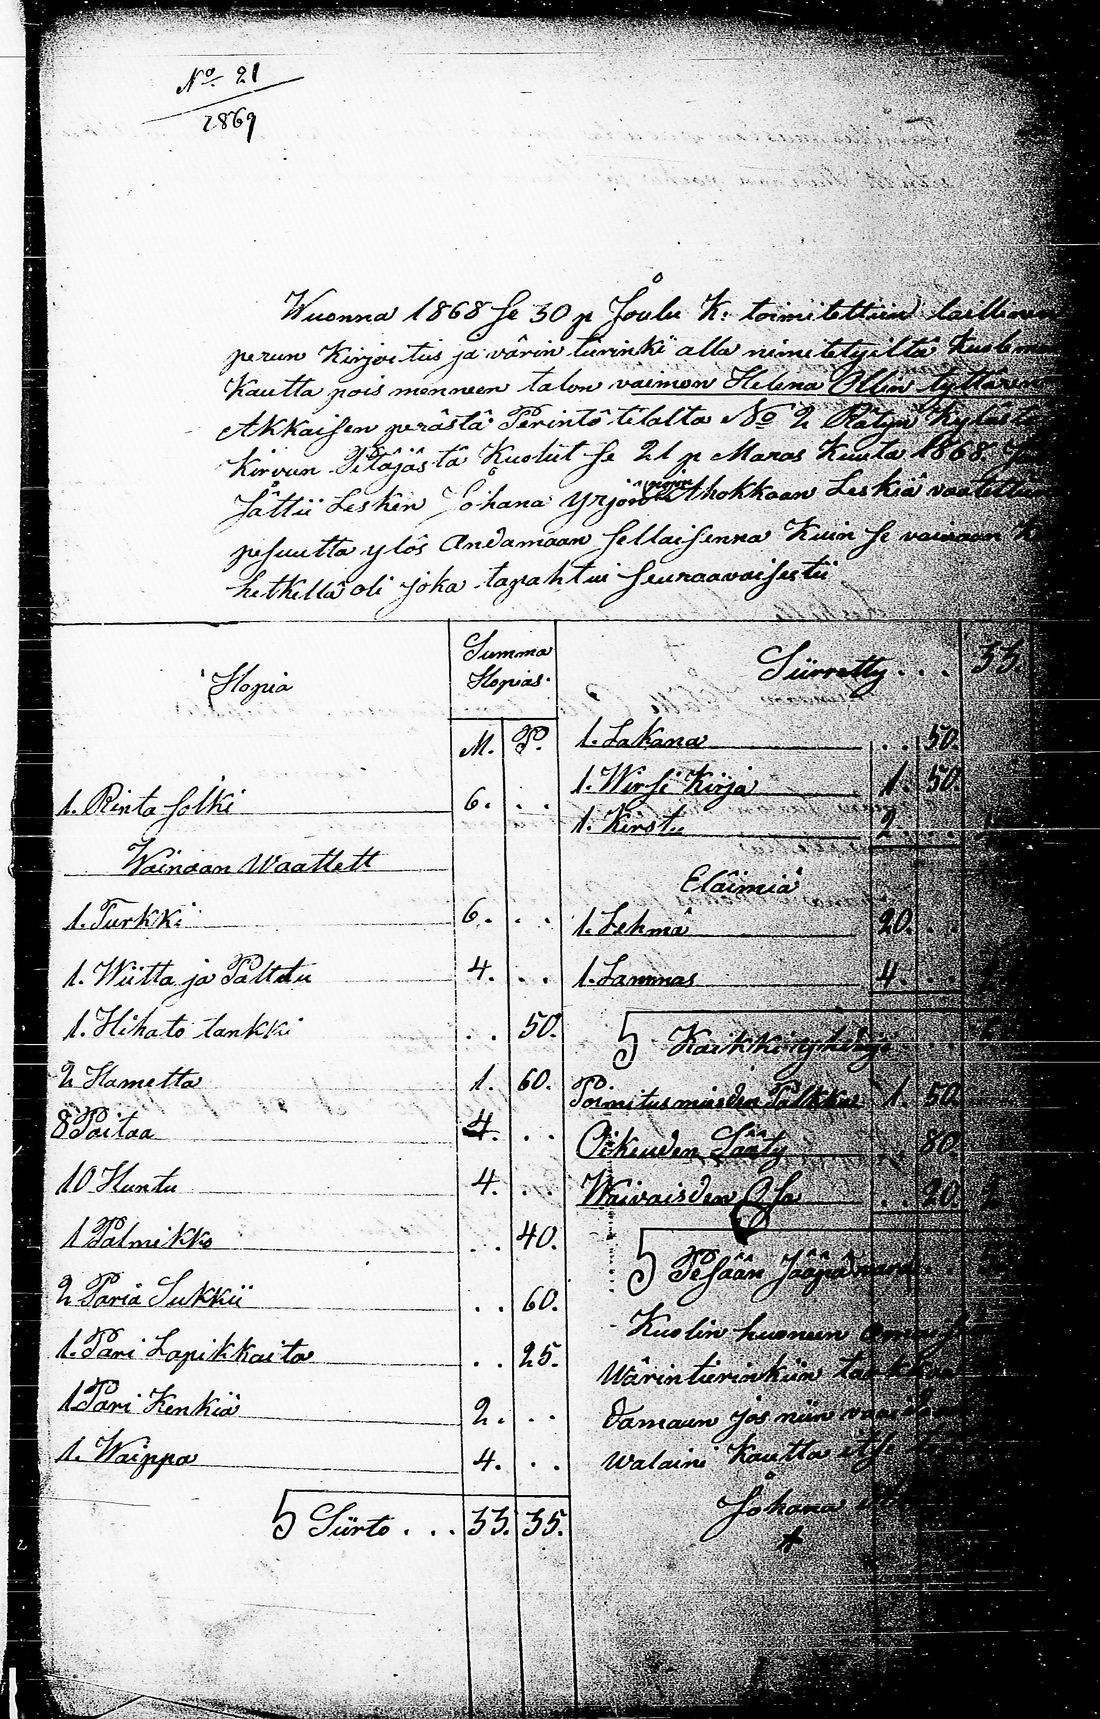 No 21
1869
Wuonna 1868 se 30 p Joulu K: toimitettiin laillinen
perun Kirjoitus ja värin tierinki alla nimitetyiltä Kuolema
Kautta pois menneen talon vaimon Helena Ollin tyttären
Akkaisen perästä Perintö tilalta No 2 Rätyn Kylästä
Kirvun Pitäjästä Kuolut se 21 p Maras Kuuta 1868
Jättii Lesken Johana Yrjön Ahokkaan Leskiä
pesuutta ylös Andamaan sellaisenna Kuin se vainaan
hetkellä oli joka tapahtui seuraavaisesti
Hopia
Summa
Hopias.
M. P.
1. Rinta solki 6. . .
Wainaan Waattett
1. Turkki 6. . .
1. Wiitta ja Palttu 4. . .
1. Hihato tankki . . 50.
2 Hametta 1. 60.
8 Paitaa 4. . .
10 Huntu 4. . .
1 Palmikko . . 40.
2 Paria Sukkii . . 60.
1. Pari Lapikkaita . . 25.
1 Pari Kenkiä 2. . .
1. Waippa 4. . .
Siirto . . . 33. 35.
Siirretty . . . 33.
1. Lakana . . 50.
1. Wirsi Kirja 1. 50.
1. Kirstu 2. . .
Eläimiä
1. Lehmä 20. . .
1. Lammas 4. . .
Kaikki
Toimitus miesden Palkka 1. 50.
Oikeuden Sääty . . 80.
Waivaisden Osa . . 20. 2
Pesään Jääpä
Kuolin huoneen
Wärintierinkiin
damaan jos niin
walaini Kautta itse
Johana